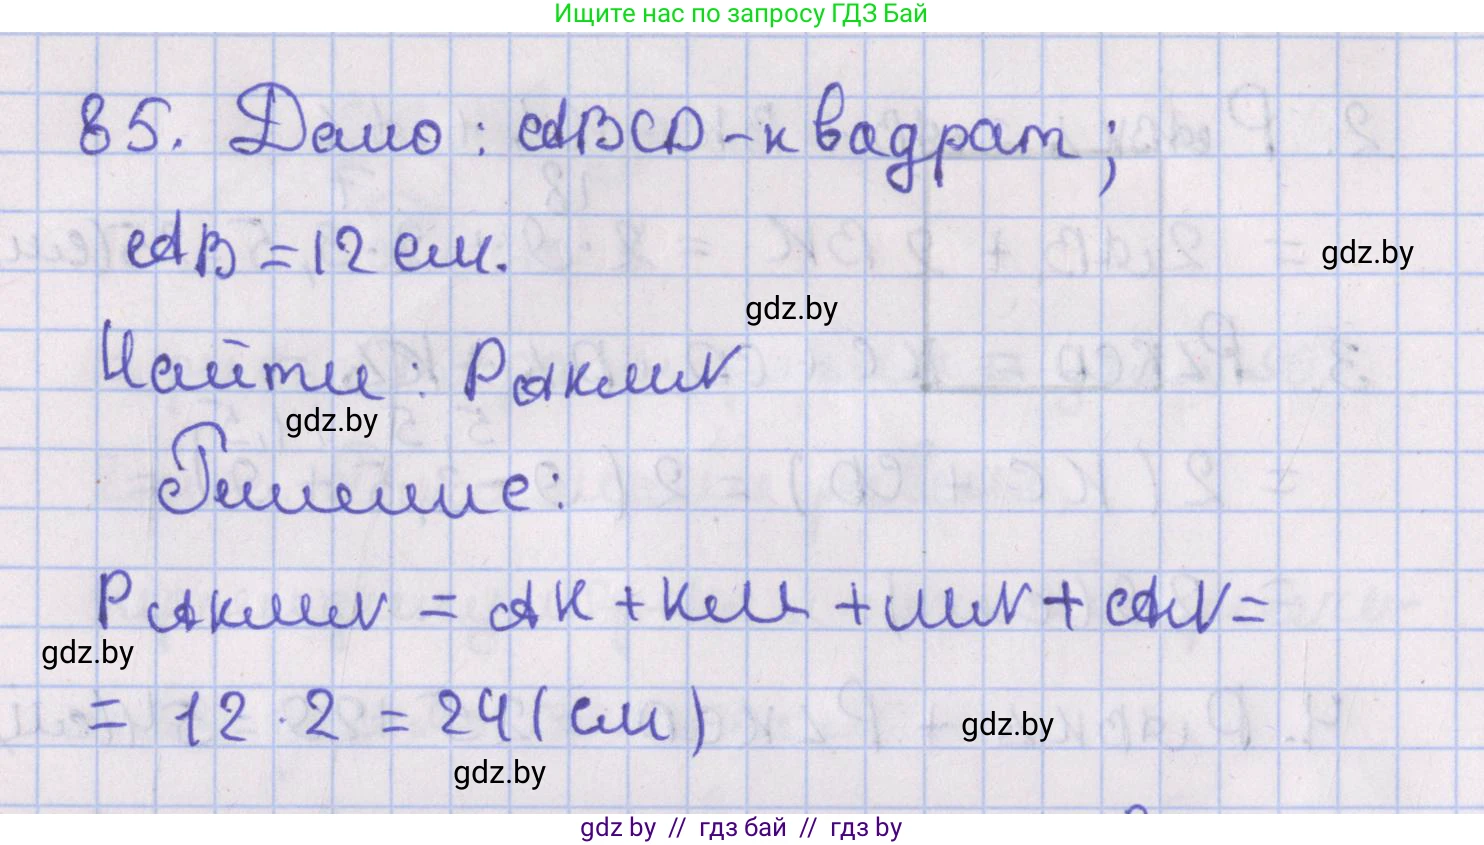 Ищите нас по запросу ГДЗ Бай
85. Дано: ABCD - квадрат;
AB = 12 см.
gdz.by
gdz.by
Найти: P AKMN
gdz.by
Решение:
P AKMN = AK + KM + MN + AN =
gdz.by
= 12 · 2 = 24 (см)
gdz.by
gdz.by
gdz by // гдз бай // гдз by